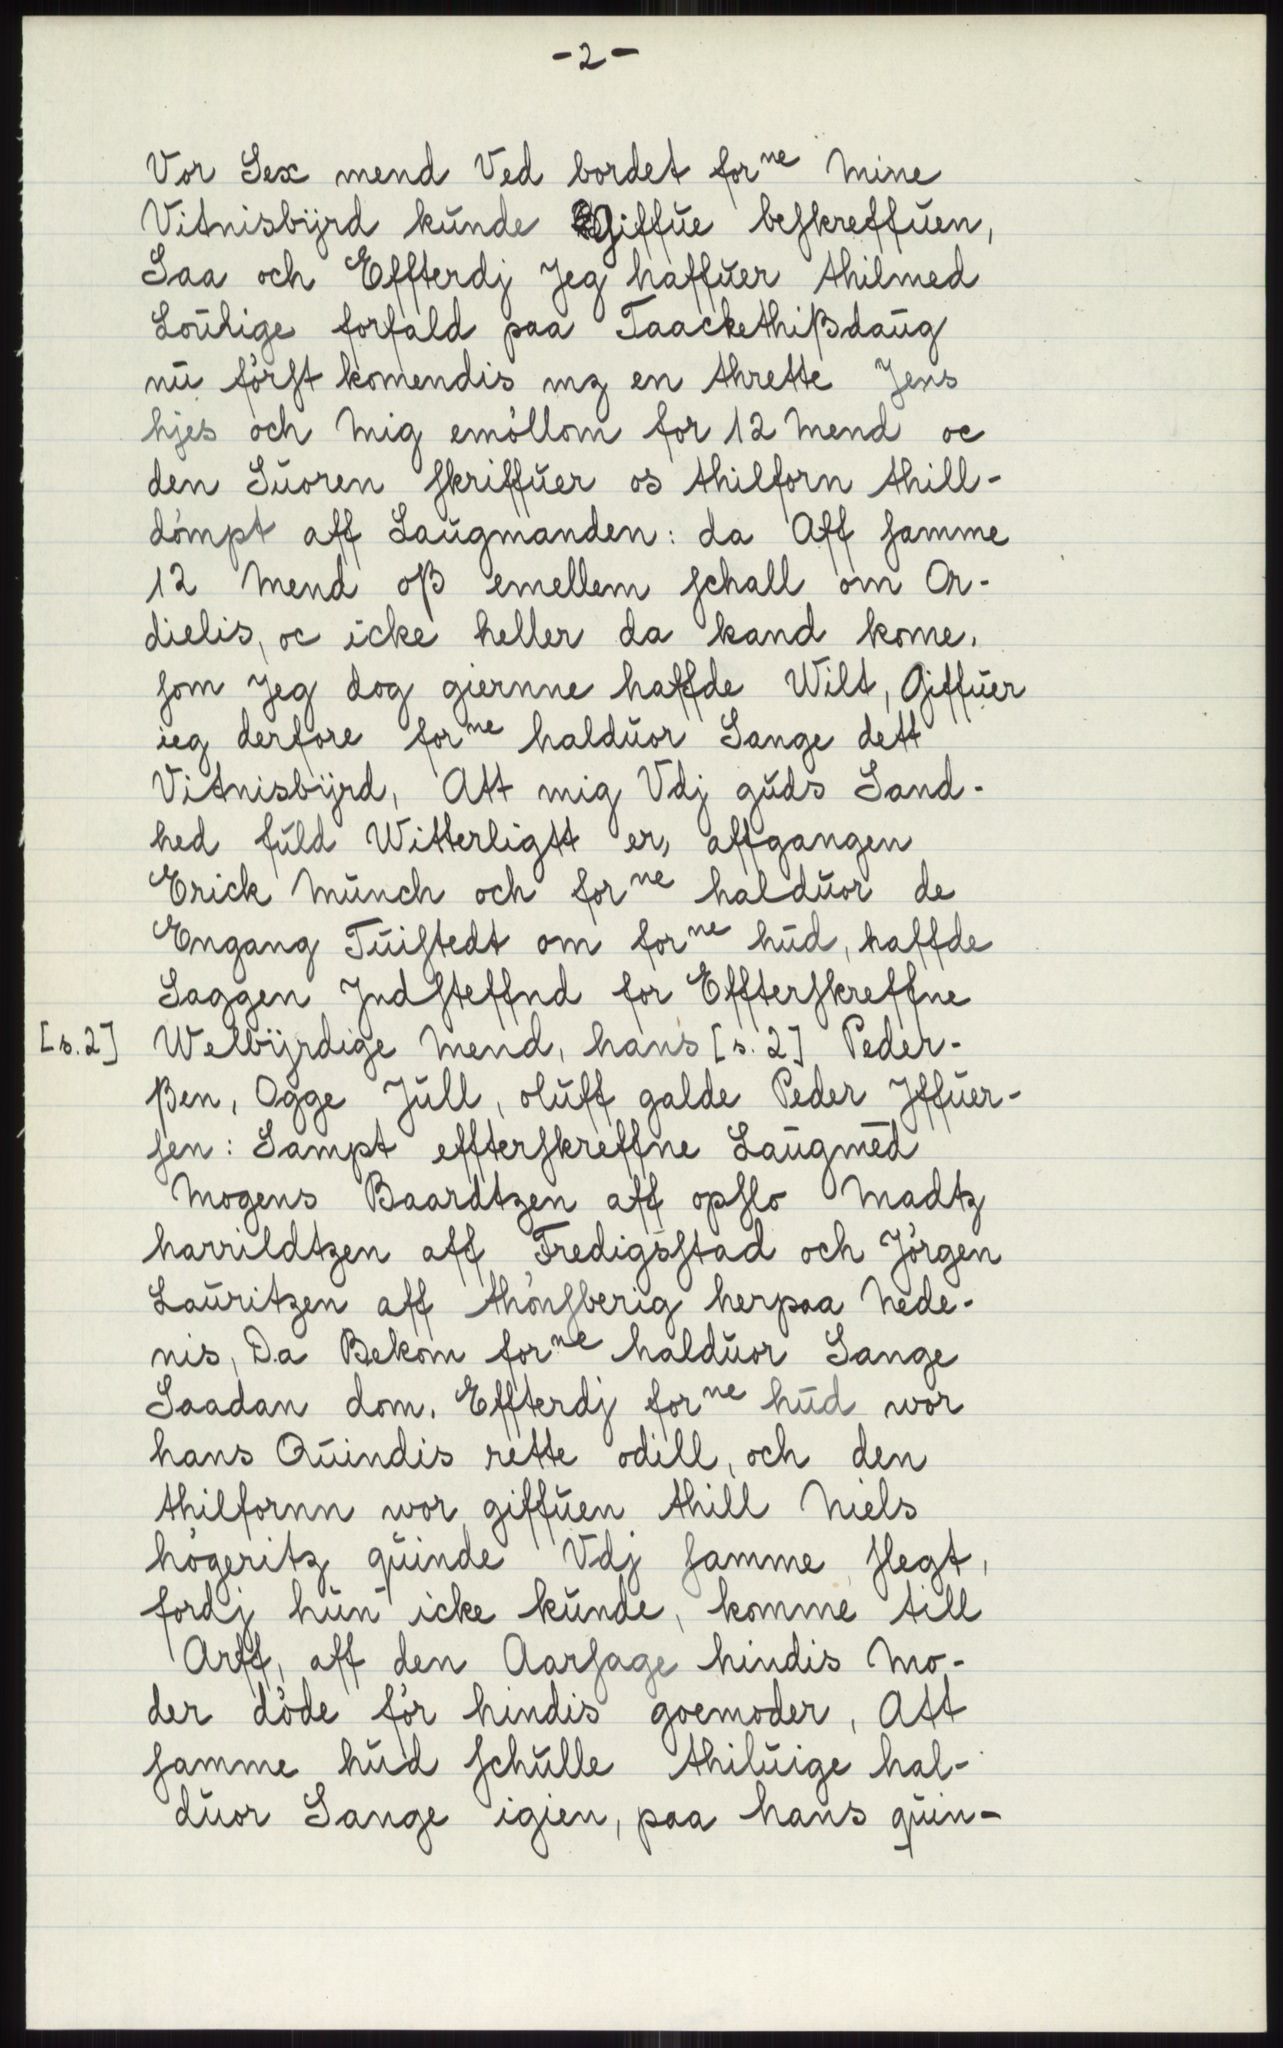 -2-
Vor Sex mend Ved bordet forne Mine
Vitnisbÿrd kŭnde Giffŭe beskreffŭen,
Saa och Effterdj Jeg haffŭer thilmed
Loŭlige forfald paa Taackethißdaŭg
nŭ först komendis mz en thrette Jens
hjes och Mig emöllom for 12 Mend oc
den Sŭoren skriffŭer os thilforn thill-
dömpt aff Laŭgmanden: da Aff samme
12 Mend oß emellem schall om Or-
dielis, oc icke heller da kand kome.
som Jeg dog giernne haffde Wilt, Giffŭer
ieg derfore forne haldŭor Sange dett
Vitnisbÿrd, Att mig Vdj gŭds Sand-
hed fŭld Witterligtt er, affgangen
Erick Mŭnch och forne haldŭor de
Engang Tŭistedt om forne hŭd, haffde
Saggen Jndsteffnd for Effterskreffne
[s.2] Welbÿrdige Mend, hans [s. 2] Peder-
ßen, Ogge Jŭll, olŭff galde Peder Jffŭer-
sen: Sampt effterskreffne Laŭgmēd
Mogens Baardtzen aff opslo Madtz
harrildtzen aff Fredigsstad och Jörgen
Laŭritzen aff thönsberig herpaa Nede-
nis, Da Bekom forne haldŭor Sange
Saadan dom. Effterdj forne hŭd wor
hans Qŭindis rette odill, och den
thilfornn wor giffŭen thill Niels
högeritz qŭinde Vdj samme slegt,
fordj hŭn icke kŭnde, komme till
Arff, aff den Aarsage hindis Mo-
der döde för hindis goemoder, Att
samme hŭd schŭlle thilŭige hal-
dŭor Sange igien, paa hans qŭin-